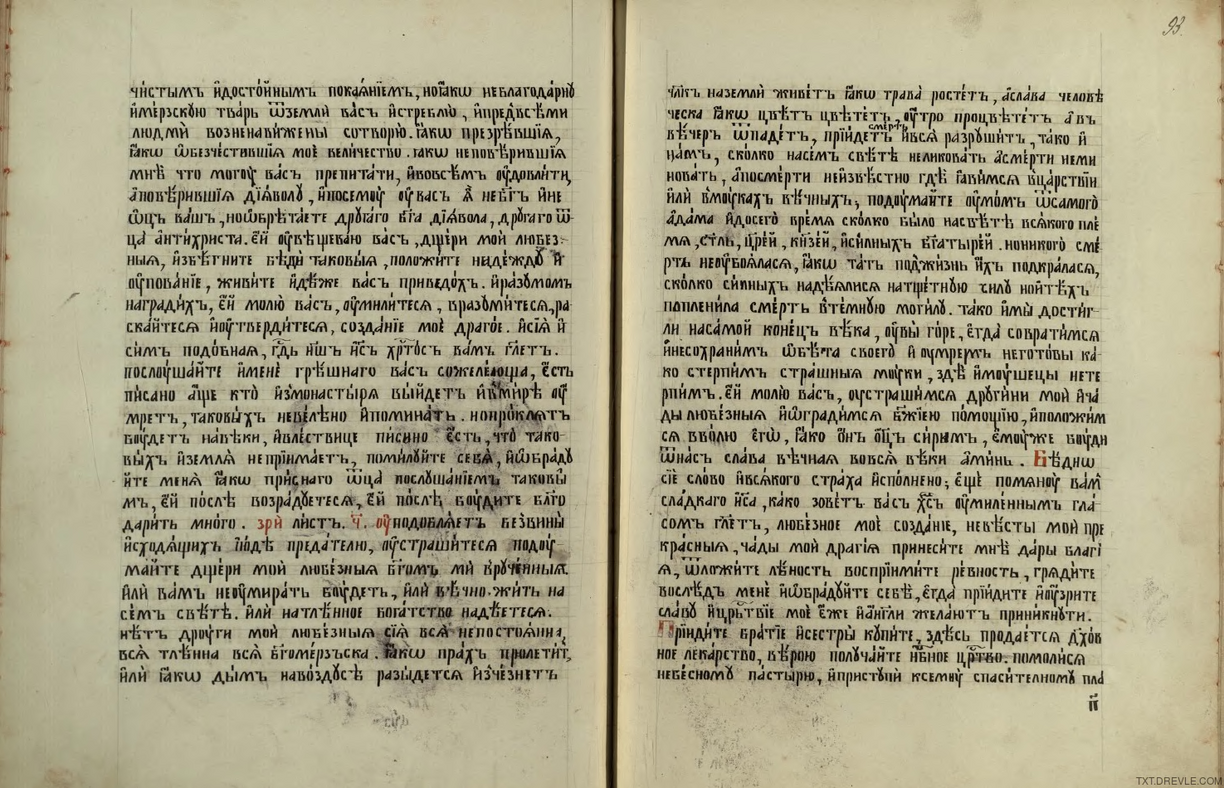 чи́стымъ и҆досто́йнымъ покаѧ́нїемъ, ноꙗ҆́кѡ неблагода́рнꙋ
и҆ме́рзскꙋю тва́рь ѿземли̑ ва́съ и҆стреблю̀, и҆пред̾всѣ́ми
людмѝ возненави́жены сотворю̀. ꙗ҆́кѡ презрѣ́вшїѧ,
ꙗ҆́кѡ ѡ҆безче́стившїѧ моѐ вели́чество. ꙗ҆́кѡ неповѣ́рившїѧ
мнѣ̀ что могꙋ̀ ва́съ препита́ти, и҆вовсе́мъ оу҆дово́лити,
а҆повѣ́рившїѧ дїѧ́волꙋ, и҆посемꙋ̀ оу҆ва́съ ꙗ҆̀ не́бг҃ъ и҆не
ѻ҆ц҃ъ ва́шъ, ноѡ҆брѣта́ете дрꙋга́го бг҃а дїѧ́вола, дрꙋга́го ѻ҆-
ца̀ анти́христа. є҆́й оу҆вѣщева́ю ва́съ, дще́ри моѝ любе́з-
ныѧ, и҆збѣ́гните бѣды̀ таковы́ѧ, положи́те наде́ждꙋ и҆
оу҆пова́нїе, живи́те и҆дѣ́же ва́съ приведо́хъ. и҆ра́зꙋмомъ
награди́хъ, є҆́й молю̀ ва́съ, оу҆мили́тесѧ, вразꙋми́тесѧ, ра
ска́йтесѧ и҆оу҆тверди́тесѧ, созда́нїе моѐ драго́е. и҆сїѧ̀ и҆
си́мъ подо́бнаѧ, гд҇ь на́шъ і҆и҃съ хр҇то́съ ва́мъ гл҃етъ.
послꙋ́шайте и҆менѐ грѣ́шнаго ва́съ сожеле́юща, є҆́сть
пи́сано а҆́ще кто̀ и҆змонастырѧ̀ вы́йдетъ и҆вми́рѣ оу҆
мре́тъ, таковы́хъ неве́лѣно и҆помина́ть. нопро́клѧтъ
бꙋ́детъ нав̾ѣки, и҆влѣ́ствице пи́сано є҆́сть, что̀ тако
вы́хъ и҆землѧ̀ непрїима́етъ, поми́лꙋйте себѧ̀, и҆ѡ҆бра́дꙋ
йте менѧ̀ ꙗ҆́кѡ при́снаго ѻ҆тца̀ послꙋша́нїемъ таковы́
мъ, є҆́й по́слѣ возра́дꙋетесѧ, є҆́й по́слѣ бꙋ́дите бл҃го
дари́ть мно́го. зрѝ ли́стъ. ч҃. оу҆подоблѧ́етъ безвины̀
и҆сходѧ́щихъ і҆ю́дѣ преда́телю, оу҆страши́тесѧ подꙋ́
майте дще́ри моѝ любе́зныѧ бг҃омъ мѝ врꙋче́нныѧ.
и҆лѝ ва́мъ неоу҆мира́ть бꙋ́деть, и҆лѝ вѣ́чно жи́ть на
се́мъ свѣ́тѣ. и҆лѝ натлѣ́нное бога́тство надѣ́етесѧ.
нѣ́тъ дрꙋ́ги моѝ любе́зныѧ сїѧ̀ всѧ̀ непостоѧ́нна,
всѧ̀ тлѣ́нна всѧ̀ бг҃оме́рзъска. ꙗ҆́кѡ пра́хъ пролети́т,
и҆лѝ ꙗ҆́кѡ ды́мъ навоздꙋ́сѣ разы́детсѧ и҆зче́знетъ
93.
чл҃къ наземлѝ живе́тъ ꙗ҆́кѡ трава̀ росте́тъ, а҆сла́ва человѣ́
ческа ꙗ҆́кѡ цвѣ́тъ цвѣте́тъ, оу҆́тро процвѣте́тъ а҆въ
ве́черъ ѿпаде́тъ, прїи́детъ сме́рть и҆всѧ̀ разрꙋши́тъ, та́ко и҆
на́мъ, ско́лко насе́мъ свѣ́тѣ неликова́ть асме́рти неми
нова́ть, а҆посме́рти неизвѣ́стно гдѣ̀ ꙗ҆ви́мсѧ вца́рствїи
и҆лѝ вмꙋ́кахъ вѣ́чныхъ; подꙋ́майте оу҆мо́мъ ѿсамого
а҆да́ма и҆досего̀ времѧ̀ ско́лько бы́ло насвѣ́тѣ всѧ́кого пле́
мѧ, ст҃ль, цр҃е́й, кн҃зе́й, и҆си́лныхъ бг҃аты́рей. нони́кого сме́
рть неоу҆боѧ́ласѧ, ꙗ҆́кѡ та́тъ под̾жи́знь и҆́хъ подкра́ласѧ,
ско́лько си́лныхъ надѣ́ѧлисѧ натще́тнꙋю си́лꙋ нои҆тѣ́хъ
пополени́ла сме́рть вте́мнꙋю моги́лꙋ. та́ко и҆мы̀ дости́г
ли наса́мой коне́цъ вѣ́ка, оу҆вы̀ го́ре, є҆гда̀ соврати́мсѧ
и҆несохрани́мъ ѡ҆бѣ́та своего̀ и҆ оу҆мре́мъ негото́вы ка́
ко сте́рпимъ стра́шныѧ мꙋ́ки, здѣ̀ и҆мꙋщецы нете
рпи́мъ. є҆́й молю̀ ва́съ, оу҆страши́мсѧ дрꙋ́гини моѝ и҆ча́
ды любе́зныѧ и҆ѡ҆гради́мсѧ бж҃їею по́мощїю, и҆положи́м
сѧ вво́лю є҆гѡ̀, ꙗ҆́ко о҆́нъ ѻ҆ц҃ъ си́римъ, є҆мꙋ́же бꙋ́ди
ѿна́съ сла́ва вѣ́чнаѧ вовсѧ̀ вѣ́ки а҆ми́нь. Бѣ́днѡ
сїѐ сло́во и҆всѧ́кого стра́ха и҆спо́лнено; є҆щѐ помѧнꙋ̀ ва́м
сла́дкаго і҆и҃са, ка́ко зове́тъ ва́съ хс҃ъ оу҆миле́ннымъ гла́
сомъ гл҃етъ, любе́зное моѐ созда́нїе, невѣ́сты моѝ пре
кра́сныѧ, ча́ды моѝ драгі́ѧ принеси́те мнѣ̀ да́ры благі́
ѧ, ѿложи́те лѣ́ность воспрїими́те ре́вность, грѧди́те
вослѣ́дъ менѐ и҆ѡ҆бра́дꙋйте себѣ̀, є҆гда̀ прїи́дите и҆оу҆́зрите
сла́вꙋ и҆цр҇твїе моѐ є҆́же и҆а҆́нг҃ли жела́ютъ прини́кнꙋти.
Прїиди́те бра́тїе и҆се́стры кꙋпи́те, здѣ́сь продае́тсѧ дꙋ҃хо́в
ное лѣка́рство, вѣ́рою полꙋча́йте нб҃ное цр҇тво. помоли́сѧ
небе́сномꙋ па́стырю, и҆пристꙋпѝ ксемꙋ̀ спаси́телномꙋ пла
п҃і
TXT.DREVLE.COM